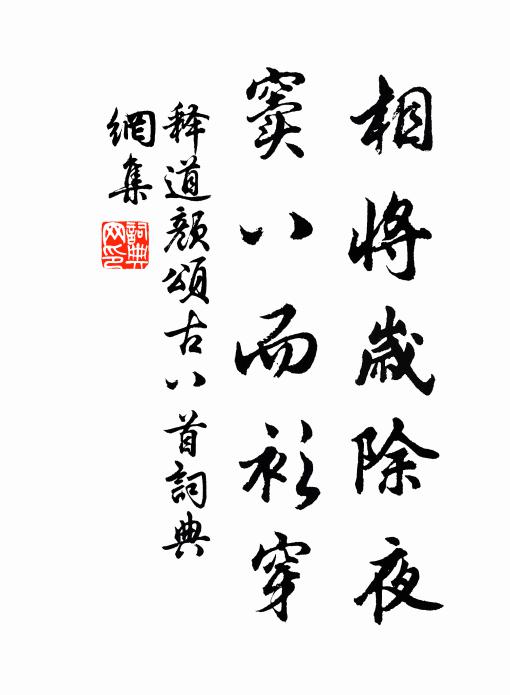 相將歲除夜
窦八布衫穿
释道顔頌古八首詞典
網集
詞典
网印